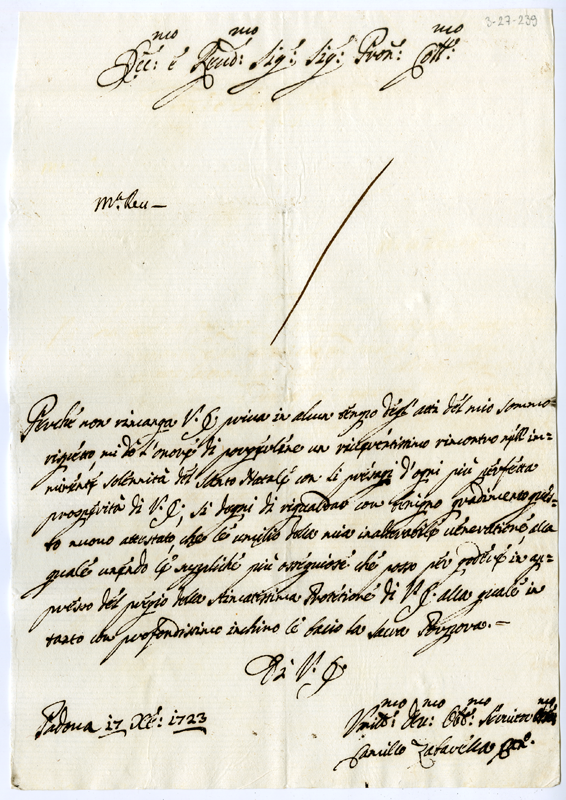 3-27-239
Ecc:mo e Revd:mo Sig:r Sig:r Pron: Coll:mo
M.r Reu—
Perche non rimanga V: E: priva in alcun tempo degl' atti del mio sommo
rispetto, mi dò l'onore di porgerlene un riverentissimo rincontro nell' im=
minente solennità del Santo Natale con li presagi d'ogni più perfetta
prosperità di V: E:; si degni di riguardar con benigno gradimento ques=
to nuovo attestato che le umilio della mia inalterabile venerazione, alla
quale unendo le suppliche più ossequiose che posso per godere in
presso del pregio della stimatissima Protezione di V: E: alla quale in
tanto con profondissimo inchino le bacio la Sacra Porpora.=
Di V: E:
Padova 17 Xbre: 1723
Umil:mo Dev:mo Obb:mo Servitore
Camillo Can:o